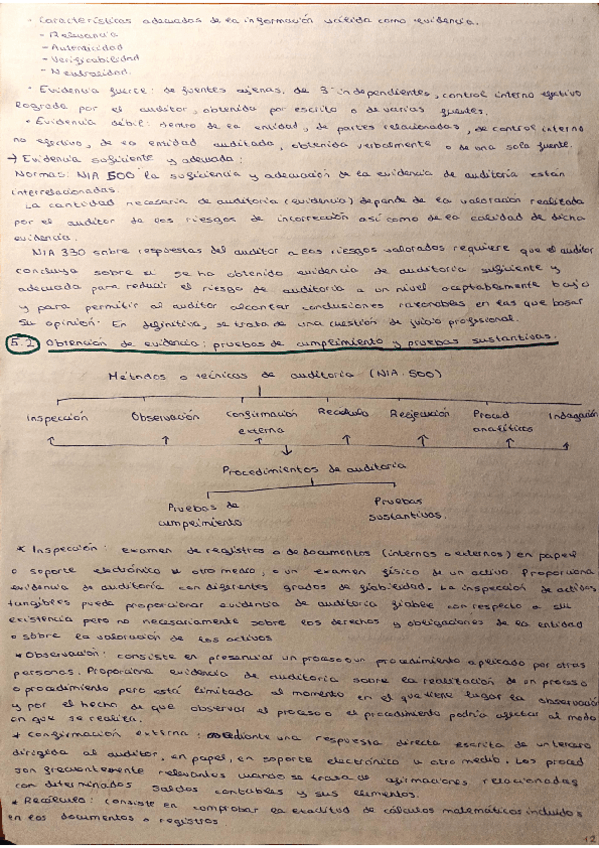 · Características adecuadas de la información válida como evidencia.
- Relevancia
- Autenticidad
- Verificabilidad
- Neutralidad.
· Evidencia fuerte: de fuentes ajenas, de 3º independientes, control interno efectivo
lograda por el auditor, obtenida por escrito o de varias fuentes.
· Evidencia débil: dentro de la entidad, de partes relacionadas, de control interno
no efectivo, de la entidad auditada, obtenida verbalmente o de una sola fuente.
→ Evidencia suficiente y adecuada:
Normas: NIA 500 la suficiencia y adecuación de la evidencia de auditoría están
interrelacionadas.
La cantidad necesaria de auditoría (evidencia) depende de la valoración realizada
por el auditor de los riesgos de incorrección así como de la calidad de dicha
evidencia.
NIA 330 sobre respuestas del auditor a los riesgos valorados requiere que el auditor
concluya sobre si se ha obtenido evidencia de auditoría suficiente y
adecuada para reducir el riesgo de auditoría a un nivel aceptablemente bajo
y para permitir al auditor alcanzar conclusiones razonables en las que basar
su opinión. En definitiva, se trata de una cuestión de juicio profesional.
5.2 Obtención de evidencia: pruebas de cumplimiento y pruebas sustantivas.
Métodos o técnicas de auditoría (NIA 500)
Inspección Observación Confirmación externa Recálculo Reejecución Proced analíticos Indagación
Procedimientos de auditoría
Pruebas de cumplimiento Pruebas sustantivas.
* Inspección: examen de registros o de documentos (internos o externos) en papel
o soporte electrónico u otro medio, o un examen físico de un activo. Proporciona
evidencia de auditoría con diferentes grados de fiabilidad. La inspección de activos
tangibles puede proporcionar evidencia de auditoría fiable con respecto a su
existencia pero no necesariamente sobre los derechos y obligaciones de la entidad
o sobre la valoración de los activos
* Observación: consiste en presenciar un proceso o un procedimiento aplicado por otras
personas. Proporciona evidencia de auditoría sobre la realización de un proceso
o procedimiento pero está limitada al momento en el que tiene lugar la observación
y por el hecho de que observar el proceso o el procedimiento podría afectar al modo
en que se realiza.
* Confirmación externa: mediante una respuesta directa escrita de un tercero
dirigida al auditor, en papel, en soporte electrónico u otro medio. Los proced
son frecuentemente relevantes cuando se trata de afirmaciones relacionadas
con determinados saldos contables y sus elementos.
* Recálculo: consiste en comprobar la exactitud de cálculos matemáticos incluidos
en los documentos o registros
12